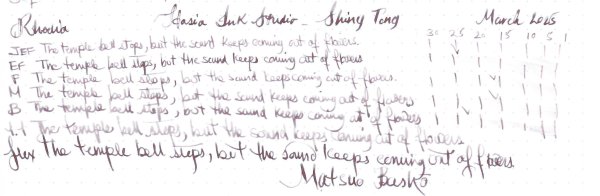 Rhodia Iasia Ink Studio - Shiny Tang March 2025
30 25 20 15 10 5 1
JEF The temple bell stops, but the sound keeps coming out of flowers.
EF The temple bell stops, but the sound keeps coming out of flowers
F The temple bell stops, but the sound keeps coming out of flowers.
M The temple bell stops, but the sound keeps coming out of flowers
B The temple bell stops, but the sound keeps coming out of flowers
1.1 The temple bell stops, but the sound keeps coming out of flowers
flex The temple bell stops, but the sound keeps coming out of flowers
Matsuo Basho